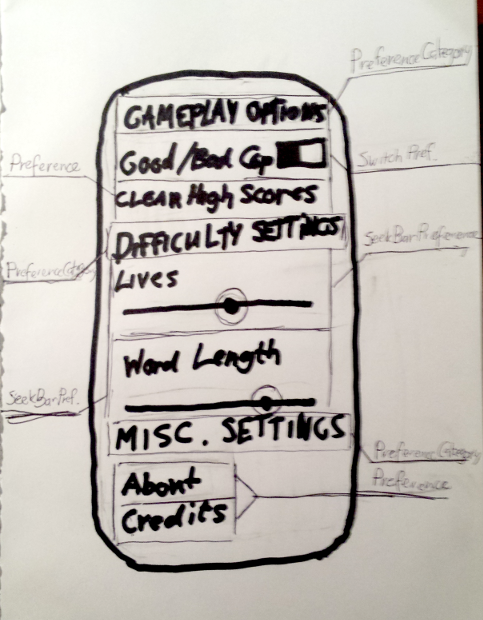 PreferenceCategory
GAMEPLAY OPTIONS
Good/Bad Cop
Switch Pref.
Preference
CLEAR High Scores
DIFFICULTY SETTINGS
SeekBarPreference
PreferenceCategory
Lives
Word Length
SeekBarPref.
MISC. SETTINGS
PreferenceCategory
About
Preference
Credits